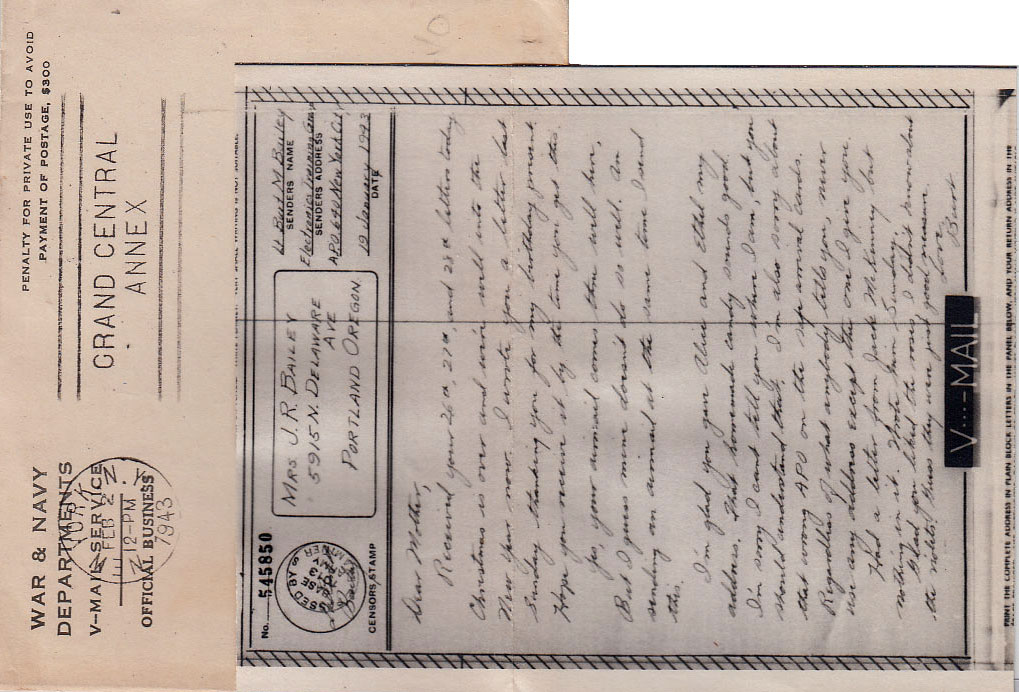 PENALTY FOR PRIVATE USE TO AVOID
PAYMENT OF POSTAGE, $300
WAR & NAVY
DEPARTMENTS
V-MAIL SERVICE
OFFICIAL BUSINESS
FEB 2
12-PM
1943
GRAND CENTRAL
ANNEX
No. 545850
MRS J.R. BAILEY
5915 N. DELAWARE
AVE
PORTLAND OREGON
CENSORS STAMP
Lt Burt M Bailey
SENDERS NAME
SENDERS ADDRESS
New York City
12 January 1943
DATE
Dear Mother,
Received your 26th, 27th, and 28th letters today
Christmas is over and we're well into the
New Year now. I wrote you a letter last
Sunday thanking you for my birthday present.
Hope you receive it by the time you get this.
Yes, your airmail comes thru well here,
But I guess mine doesn't do so well. Am
sending an airmail at the same time I send
this.
I'm glad you gave Alice and Ethel my
address. That homemade candy sounds good.
I'm sorry I cant tell you where I am, but you
should understand that. I'm also sorry about
that wrong APO on the safe arrival cards.
Regardless of what anybody tells you never
use any address except the one I give you.
Had a letter from Jack McKinney but
nothing in it. Wrote him Sunday.
Glad you liked the roses. I didn't know about
the violets! Guess they were just good measure.
Love
Burt
V···—MAIL
PRINT THE COMPLETE ADDRESS IN PLAIN BLOCK LETTERS IN THE PANEL BELOW, AND YOUR RETURN ADDRESS IN THE